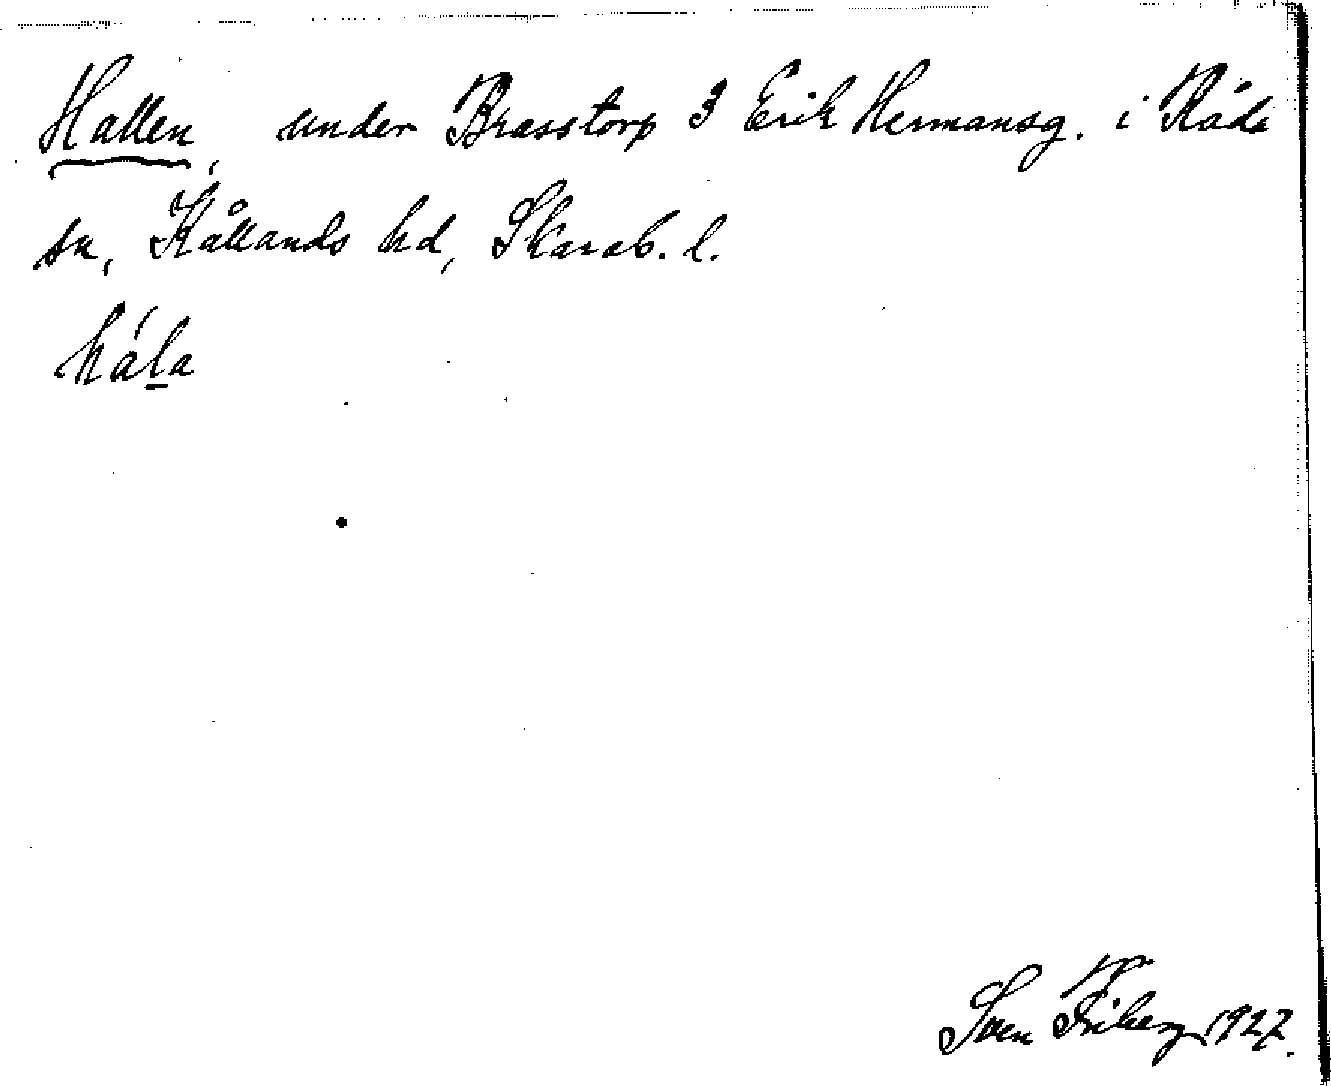 Hallen, under Brasstorp 3 Erik Hermansg. i Råda
sn, Kållands hd, Skarab. l.
há́la
Sven Friberg 1927.